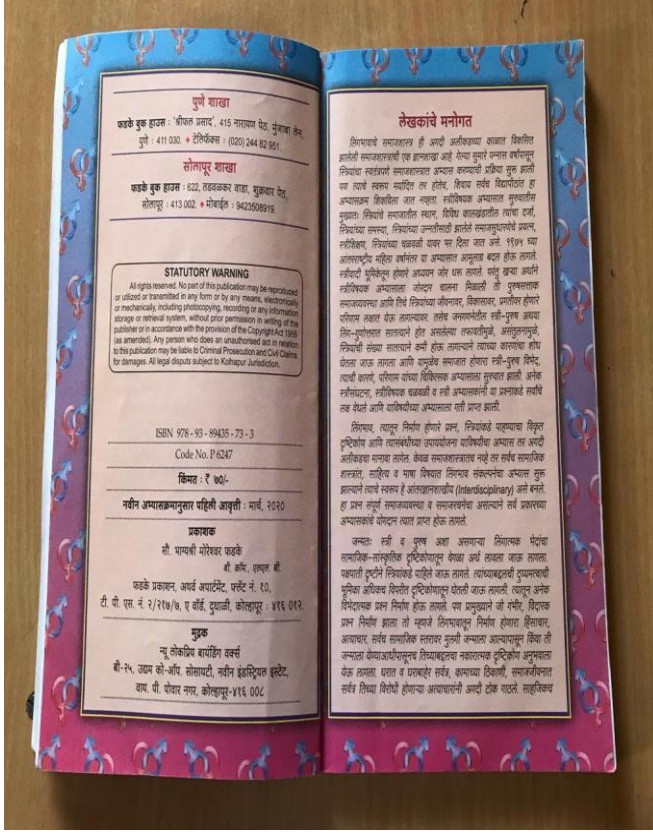 पुणे शाखा
फडके बुक हाउस : 'श्रीफल प्रसाद', 415 नारायण पेठ, मुंजाबा लेन,
पुणे : 411 030. ♦ टेलिफॅक्स : (020) 244 82 951.
सोलापूर शाखा
फडके बुक हाउस : 622, तडवळकर वाडा, शुक्रवार पेठ,
सोलापूर : 413 002. ♦ मोबाईल : 9423508919.
STATUTORY WARNING
All rights reserved. No part of this publication may be reproduced
or utilized or transmitted in any form or by any means, electronically
or mechanically, including photocopying, recording or any information
storage or retrieval system, without prior permission in writing of the
publisher or in accordance with the provision of the Copyright Act 1956
(as amended). Any person who does an unauthorised act in relation
to this publication may be liable to Criminal Prosecution and Civil Claims
for damages. All legal disputes subject to Kolhapur Jurisdiction.
ISBN 978 - 93 - 89435 - 73 - 3
Code No. P 6247
किंमत : ₹ ७०/-
नवीन अभ्यासक्रमानुसार पहिली आवृत्ती : मार्च, २०२०
प्रकाशक
सौ. भाग्यश्री मोरेश्वर फडके
बी. कॉम., एलएल. बी.
फडके प्रकाशन, अथर्व अपार्टमेंट, फ्लॅट नं. १०,
टी. पी. एस. नं. २/२१७/७, ए वॉर्ड, दुधाळी, कोल्हापूर : ४१६ ०१२.
मुद्रक
न्यू लोकप्रिय बायंडिंग वर्क्स
बी-२५, उद्यम को-ऑप. सोसायटी, नवीन इंडस्ट्रियल इस्टेट,
वाय. पी. पोवार नगर, कोल्हापूर-४१६ ००८
लेखकांचे मनोगत
लिंगभावाचे समाजशास्त्र ही अगदी अलीकडच्या काळात विकसित
झालेली समाजशास्त्राची एक ज्ञानशाखा आहे. गेल्या सुमारे पन्नास वर्षांपासून
स्त्रियांचा स्वतंत्रपणे समाजशास्त्रात अभ्यास करण्याची प्रक्रिया सुरू झाली
पण त्याचे स्वरूप मर्यादित तर होतेच, शिवाय सर्वच विद्यापीठांत हा
अभ्यासक्रम शिकविला जात नव्हता. स्त्रीविषयक अभ्यासात सुरुवातीस
मुख्यतः स्त्रियांचे समाजातील स्थान, विविध कालखंडातील त्यांचा दर्जा,
स्त्रियांच्या समस्या, स्त्रियांच्या उन्नतीसाठी झालेले समाजसुधारणेचे प्रयत्न,
स्त्रीशिक्षण, स्त्रियांच्या चळवळी यावर भर दिला जात असे. १९७५ च्या
आंतरराष्ट्रीय महिला वर्षानंतर या अभ्यासात आमूलाग्र बदल होऊ लागले.
स्त्रीवादी भूमिकेतून होणारे अध्ययन जोर धरू लागले. परंतु खऱ्या अर्थाने
स्त्रीविषयक अभ्यासाला जोरदार चालना मिळाली ती पुरुषसत्ताक
समाजव्यवस्था आणि तिचे स्त्रियांच्या जीवनावर, विकासावर, प्रगतीवर होणारे
परिणाम लक्षात येऊ लागल्यावर. तसेच जनगणनेतील स्त्री-पुरुष अथवा
लिंग-गुणोत्तरात सातत्याने होत असलेल्या तफावतीमुळे, असंतुलनामुळे,
स्त्रियांची संख्या सातत्याने कमी होऊ लागल्याने त्याच्या कारणांचा शोध
घेतला जाऊ लागला आणि यामुळेच समाजात होणारा स्त्री-पुरुष विभेद,
त्याची कारणे, परिणाम यांच्या चिकित्सक अभ्यासाला सुरुवात झाली. अनेक
स्त्रीसंघटना, स्त्रीविषयक चळवळी व स्त्री अभ्यासकांनी या प्रश्नाकडे सर्वांचे
लक्ष वेधले आणि याविषयीच्या अभ्यासाला गती प्राप्त झाली.
लिंगभाव, त्यातून निर्माण होणारे प्रश्न, स्त्रियांकडे पाहण्याचा विकृत
दृष्टिकोण आणि त्यासंबंधीच्या उपाययोजना याविषयीचा अभ्यास तर अगदी
अलीकडचा मानावा लागेल. केवळ समाजशास्त्रातच नव्हे तर सर्वच सामाजिक
शास्त्रांत, साहित्य व भाषा विषयात लिंगभाव संकल्पनेचा अभ्यास सुरू
झाल्याने त्याचे स्वरूप हे आंतरज्ञानशाखीय (Interdisciplinary) असे बनले.
हा प्रश्न संपूर्ण समाजव्यवस्था व समाजरचनेचा असल्याने सर्व प्रकारच्या
अभ्यासकांचे योगदान त्यात प्राप्त होऊ लागले.
जन्मतः स्त्री व पुरुष अशा असणाऱ्या लिंगात्मक भेदांचा
सामाजिक-सांस्कृतिक दृष्टिकोणातून वेगळा अर्थ लावला जाऊ लागला.
पक्षपाती दृष्टीने स्त्रियांकडे पाहिले जाऊ लागले. त्यांच्याबद्दलची दुय्यमत्वाची
भूमिका अधिकच विपरीत दृष्टिकोणातून घेतली जाऊ लागली. त्यातून अनेक
विभेदात्मक प्रश्न निर्माण होऊ लागले. पण प्रामुख्याने जो गंभीर, विदारक
प्रश्न निर्माण झाला तो म्हणजे लिंगभावातून निर्माण होणारा हिंसाचार,
अत्याचार. सर्वच सामाजिक स्तरावर मुलगी जन्माला आल्यापासून किंवा ती
जन्माला येण्याआधीपासूनच तिच्याबद्दलचा नकारात्मक दृष्टिकोण अनुभवाला
येऊ लागला. घरात व घराबाहेर सर्वत्र, कामाच्या ठिकाणी, समाजजीवनात
सर्वत्र तिच्या विरोधी होणाऱ्या अत्याचारांनी अगदी टोक गाठले. साहजिकच